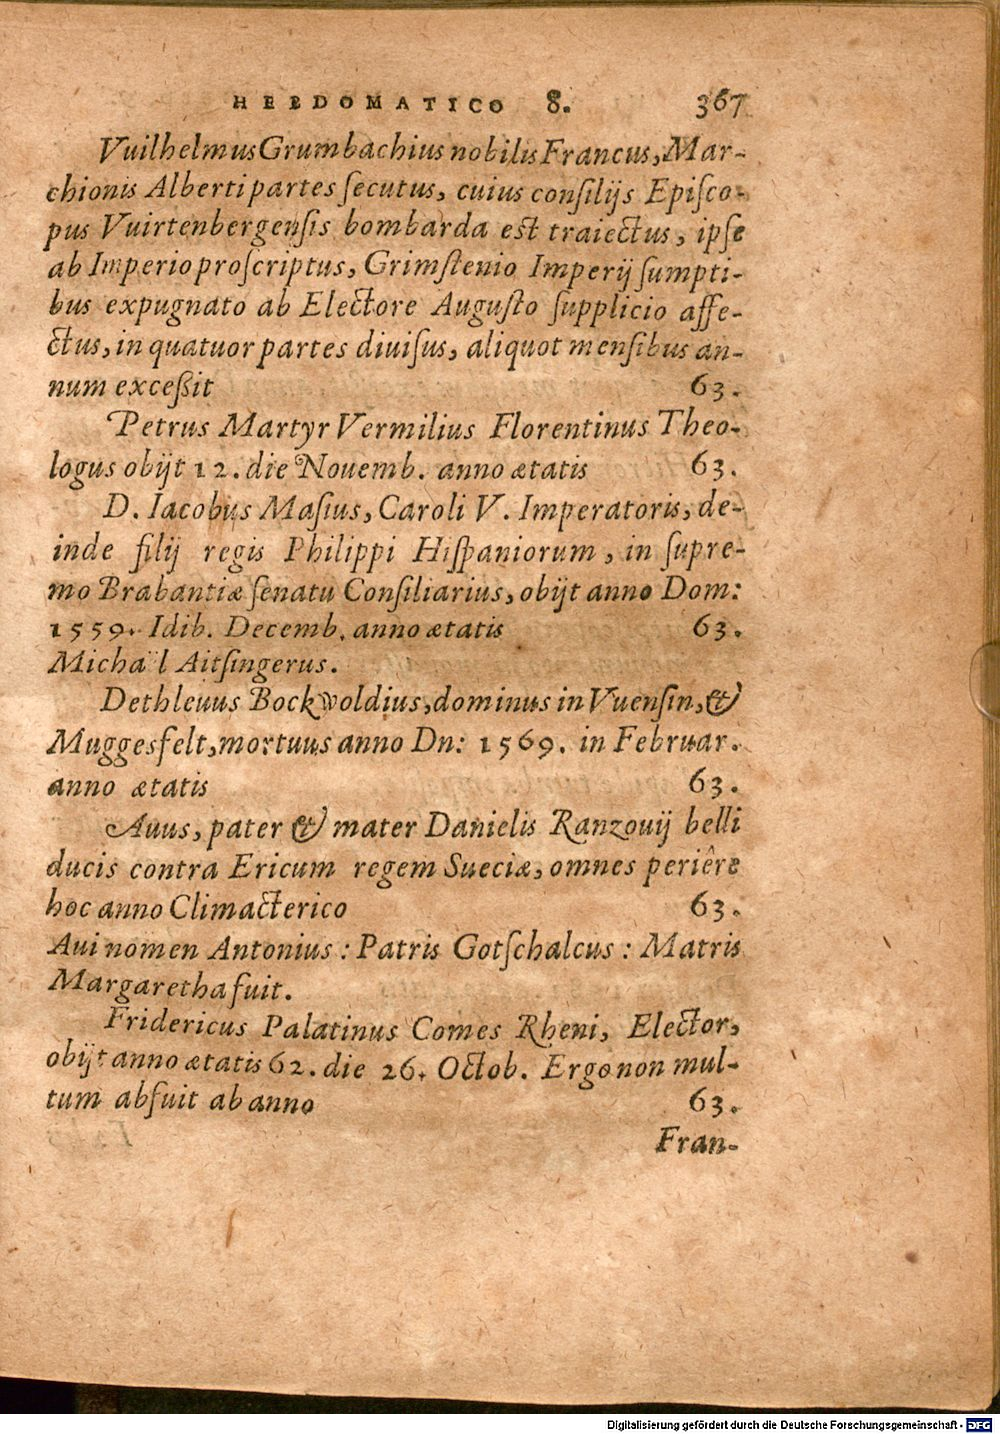 HEBDOMATICO 8. 367
Vuilhelmus Grumbachius nobilis Francus, Mar-
chionis Alberti partes ſecutus, cuius conſilijs Epiſco-
pus Vuirtenbergenſis bombarda est traiectus, ipſe
ab Imperio proſcriptus, Grimſtenio Imperij ſumpti-
bus expugnato ab Electore Auguſto ſupplicio affe-
ctus, in quatuor partes diuiſus, aliquot menſibus an-
num exceßit 63.
Petrus Martyr Vermilius Florentinus Theo-
logus obijt 12. die Nouemb. anno ætatis 63.
D. Iacobus Maſius, Caroli V. Imperatoris, de-
inde filij regis Philippi Hiſpaniorum, in ſupre-
mo Brabantiæ ſenatu Conſiliarius, obijt anno Dom:
1559. Idib. Decemb. anno ætatis 63.
Michaël Aitſingerus.
Dethleuus Bockwoldius, dominus in Vuenſin, &
Muggesfelt, mortuus anno Dn: 1569. in Februar.
anno ætatis 63.
Auus, pater & mater Danielis Ranzouij belli
ducis contra Ericum regem Sueciæ, omnes periêre
hoc anno Climacterico 63.
Aui nomen Antonius: Patris Gotſchalcus: Matris
Margaretha fuit.
Fridericus Palatinus Comes Rheni, Elector,
obijt anno ætatis 62. die 26. Octob. Ergo non mul-
tum abfuit ab anno 63.
Fran-
Digitalisierung gefördert durch die Deutsche Forschungsgemeinschaft - DFG